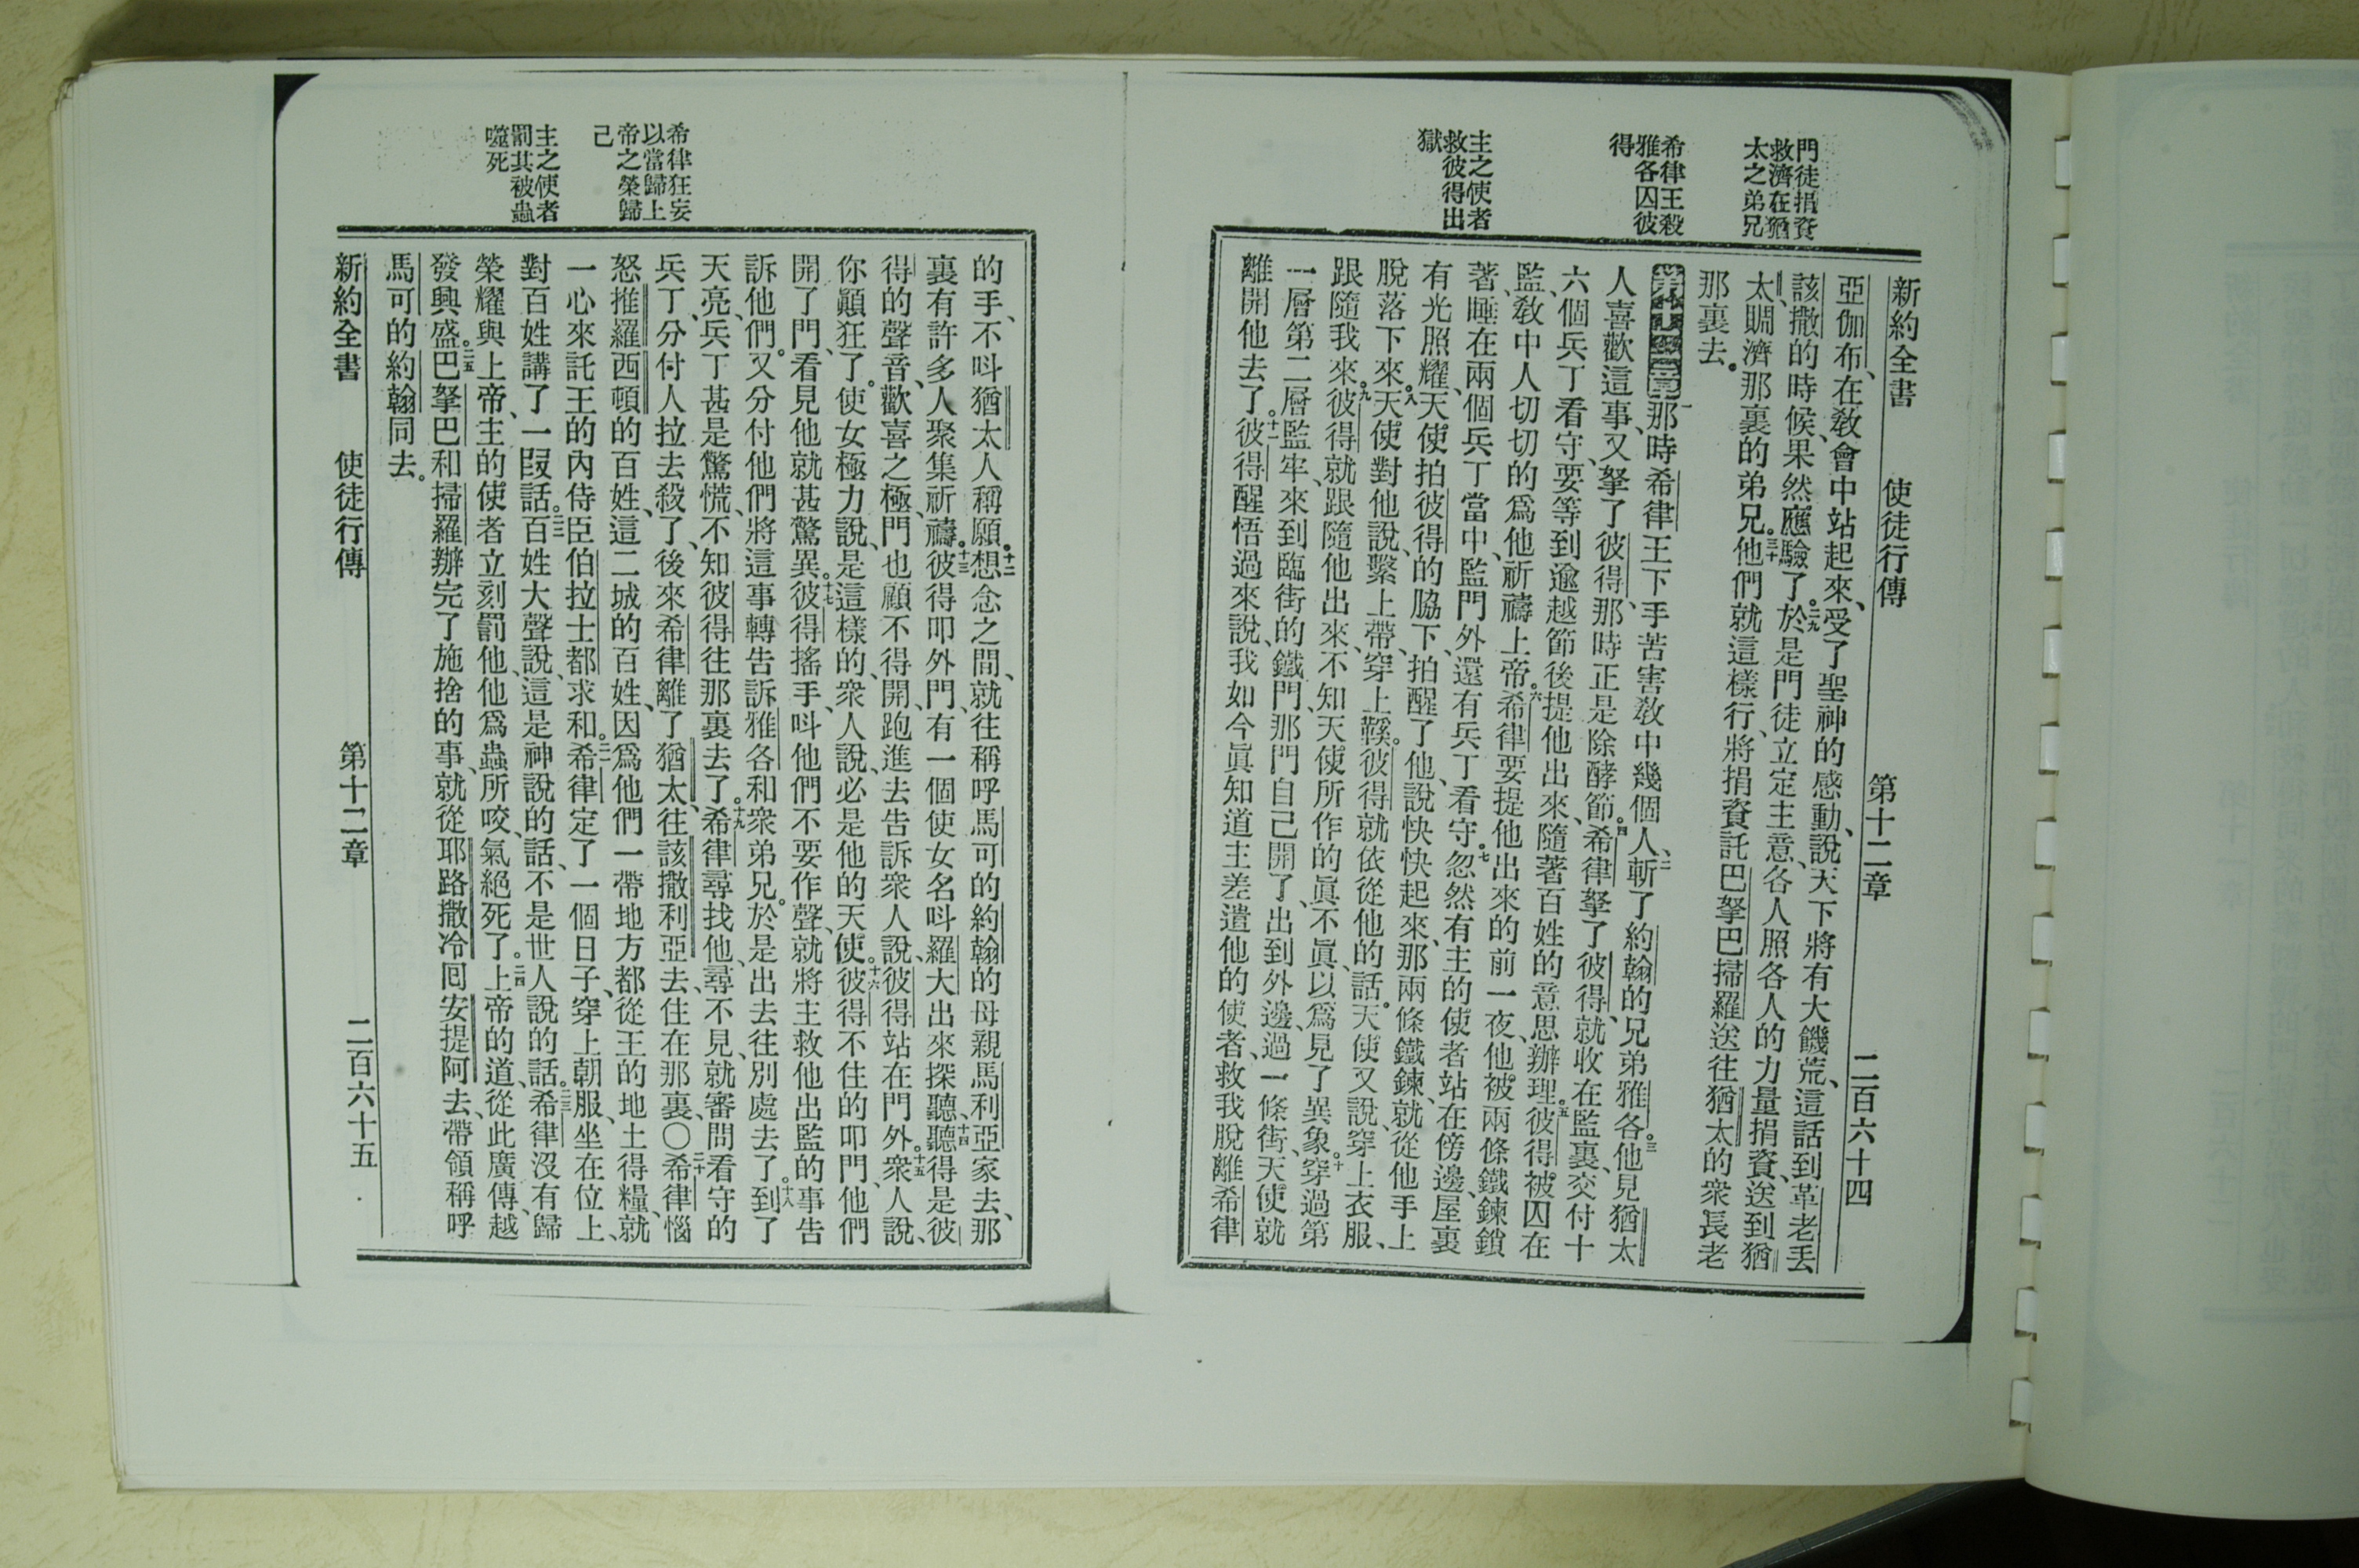 門徒捐資
救濟在猶
太之弟兄
希律王殺
雅各囚彼
得
主之使者
救彼得出
獄
新約全書 使徒行傳 第十二章 二百六十四
亞伽布、在敎會中站起來、受了聖神的感動、說、天下將有大饑荒、這話到革老丟
該撒的時候、果然應驗了。二九於是門徒立定主意、各人照各人的力量捐資、送到猶
太、賙濟那裏的弟兄。三十他們就這樣行、將捐資託巴拏巴掃羅送往猶太的衆長老
那裏去。
第十二章一那時希律王下手苦害敎中幾個人、二斬了約翰的兄弟雅各。三他見猶太
人喜歡這事、又拏了彼得、那時正是除酵節。四希律拏了彼得、就收在監裏、交付十
六個兵丁看守、要等到逾越節後提他出來、隨著百姓的意思辦理。五彼得被囚在
監、敎中人切切的爲他祈禱上帝。六希律要提他出來的前一夜、他被兩條鐵鍊鎖
著、睡在兩個兵丁當中、監門外還有兵丁看守。七忽然有主的使者站在傍邊、屋裏
有光照耀、天使拍彼得的脇下、拍醒了他、說、快快起來、那兩條鐵鍊、就從他手上
脫落下來。八天使對他說、繫上帶、穿上鞵。彼得就依從他的話。天使又說、穿上衣服、
跟隨我來。九彼得就跟隨他出來、不知天使所作的眞不眞、以爲見了異象。十穿過第
一層第二層監牢、來到臨街的鐵門、那門自己開了、出到外邊、過一條街、天使就
離開他去了。十一彼得醒悟過來、說、我如今眞知道主差遣他的使者、救我脫離希律
希律狂妄
以當歸上
帝之榮歸
己
主之使者
罰其被蟲
噬死
的手、不呌猶太人稱願。十二想念之間、就往稱呼馬可的約翰的母親馬利亞家去、那
裏有許多人聚集祈禱。十三彼得叩外門、有一個使女名呌羅大出來探聽、十四聽得是彼
得的聲音、歡喜之極、門也顧不得開、跑進去告訴衆人、說、彼得站在門外。十五衆人說、
你顚狂了。使女極力說、是這樣的、衆人說、必是他的天使。十六彼得不住的叩門、他們
開了門、看見他就甚驚異。十七彼得搖手、呌他們不要作聲、就將主救他出監的事告
訴他們。又分付他們將這事轉告訴雅各和衆弟兄。於是出去往別處去了。十八到了
天亮、兵丁甚是驚慌、不知彼得往那裏去了。十九希律尋找他、尋不見、就審問看守的
兵丁、分付人拉去殺了、後來希律離了猶太、往該撒利亞去、住在那裏、〇二十希律惱
怒推羅西頓的百姓、這二城的百姓、因爲他們一帶地方都從王的地土得糧、就
一心來託王的內侍臣伯拉士都求和。二一希律定了一個日子、穿上朝服、坐在位上、
對百姓講了一段話。二二百姓大聲說、這是神說的話、不是世人說的話。二三希律沒有歸
榮耀與上帝、主的使者立刻罰他、他爲蟲所咬、氣絕死了。二四上帝的道、從此廣傳、越
發興盛。二五巴拏巴和掃羅辦完了施捨的事、就從耶路撒冷囘安提阿去、帶領稱呼
馬可的約翰同去。
新約全書 使徒行傳 第十二章 二百六十五